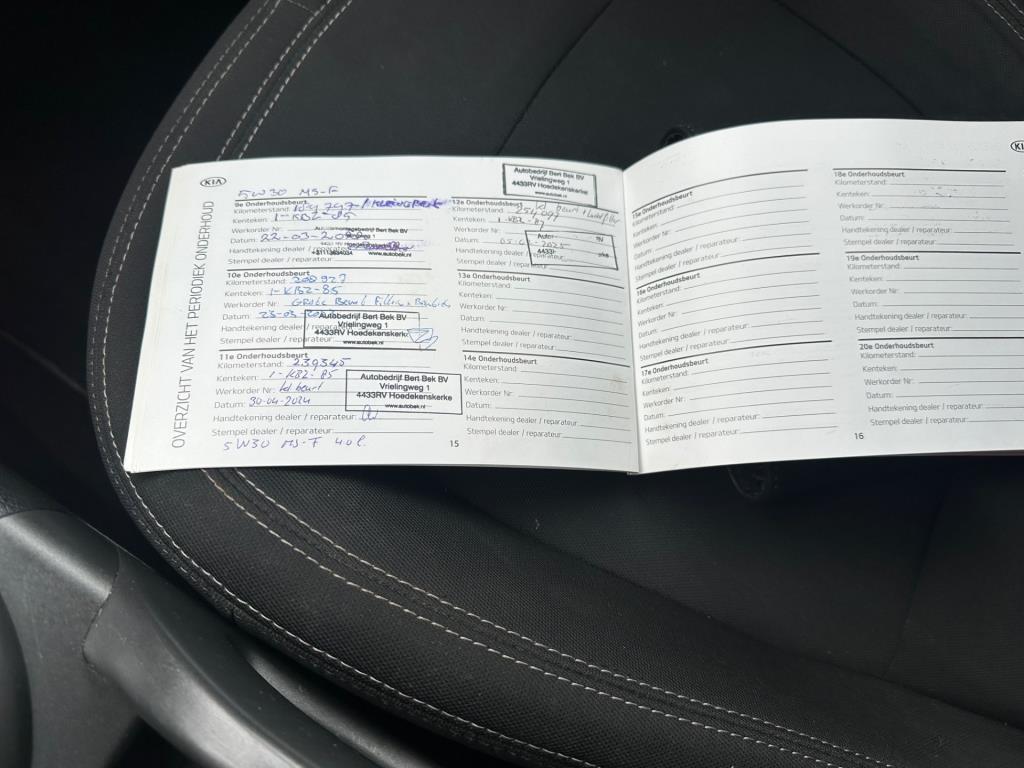 KIA
OVERZICHT VAN HET PERIODIEK ONDERHOUD
5W30 MS-F
9e Onderhoudsbeurt
Kilometerstand:
Kenteken: 1-KBZ-85
Werkorder Nr:
Datum: 22-03-
Handtekening dealer / reparateur:
Stempel dealer / reparateur:
+31113634034 www.autobek.nl
10e Onderhoudsbeurt
Kilometerstand: 200927
Kenteken: 1-KBZ-85
Werkorder Nr: Grote Beurt Filters
Datum: 23-03-
Handtekening dealer / reparateur:
Stempel dealer / reparateur:
Autobedrijf Bert Bek BV
Vrielingweg 1
4433RV Hoedekenskerke
www.autobek.nl
11e Onderhoudsbeurt
Kilometerstand: 239345
Kenteken: 1-KBZ-85
Werkorder Nr: kl beurt
Datum: 30-04-2024
Handtekening dealer / reparateur:
Stempel dealer / reparateur:
Autobedrijf Bert Bek BV
Vrielingweg 1
4433RV Hoedekenskerke
www.autobek.nl
5W30 MS-F 4.0 l.
Autobedrijf Bert Bek BV
Vrielingweg 1
4433RV Hoedekenskerke
www.autobek.nl
12e Onderhoudsbeurt
kl beurt
Kilometerstand:
Kenteken:
Werkorder Nr:
Datum:
Handtekening dealer / reparateur:
Stempel dealer / reparateur:
13e Onderhoudsbeurt
Kilometerstand:
Kenteken:
Werkorder Nr:
Datum:
Handtekening dealer / reparateur:
Stempel dealer / reparateur:
14e Onderhoudsbeurt
Kilometerstand:
Kenteken:
Werkorder Nr:
Datum:
Handtekening dealer / reparateur:
Stempel dealer / reparateur:
15
15e Onderhoudsbeurt
Kilometerstand:
Kenteken:
Werkorder Nr:
Datum:
Handtekening dealer / reparateur:
Stempel dealer / reparateur:
16e Onderhoudsbeurt
Kilometerstand:
Kenteken:
Werkorder Nr:
Datum:
Handtekening dealer / reparateur:
Stempel dealer / reparateur:
17e Onderhoudsbeurt
Kilometerstand:
Kenteken:
Werkorder Nr:
Datum:
Handtekening dealer / reparateur:
Stempel dealer / reparateur:
18e Onderhoudsbeurt
Kilometerstand:
Kenteken:
Werkorder Nr:
Datum:
Handtekening dealer / reparateur:
Stempel dealer / reparateur:
19e Onderhoudsbeurt
Kilometerstand:
Kenteken:
Werkorder Nr:
Datum:
Handtekening dealer / reparateur:
Stempel dealer / reparateur:
20e Onderhoudsbeurt
Kilometerstand:
Kenteken:
Werkorder Nr:
Datum:
Handtekening dealer / reparateur:
Stempel dealer / reparateur:
16